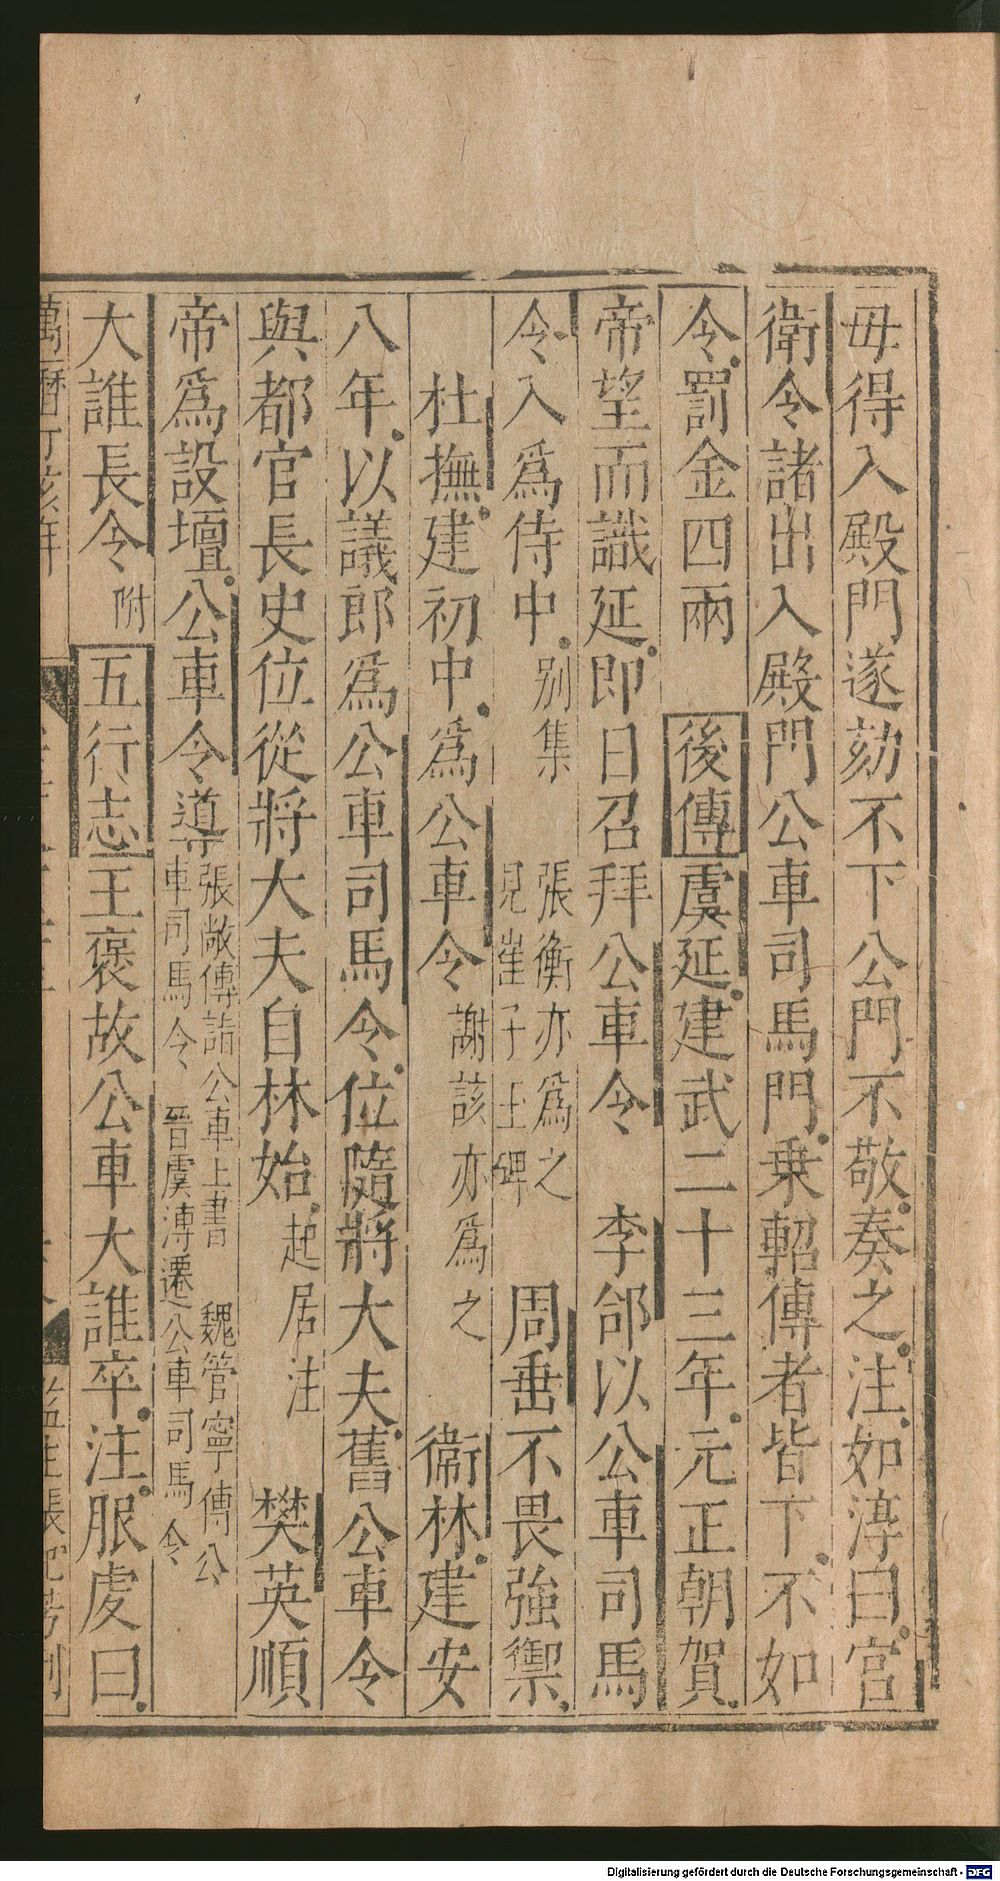 毋得入殿門遂劾不下公門不敬奏之注如淳曰宮
衛令諸出入殿門公車司馬門乗軺傳者皆下不如
令罰金四兩 後傳虞延建武二十三年元正朝賀
帝望而識延即日召拜公車令 李郃以公車司馬
令入爲侍中别集 張衡亦爲之見崔子玉碑 周垂不畏強禦
杜撫建初中爲公車令 謝該亦爲之 衞林建安
八年以議郎爲公車司馬令位隨將大夫舊公車令
與都官長史位從將大夫自林始起居注 樊英順
帝爲設壇公車令導 張敞傳詣公車上書 魏管寧傳公車司馬令 晉虞溥遷公車司馬令
大誰長令附 五行志王褒故公車大誰卒注服虔曰
萬曆丁亥年
Digitalisierung gefördert durch die Deutsche Forschungsgemeinschaft - DFG